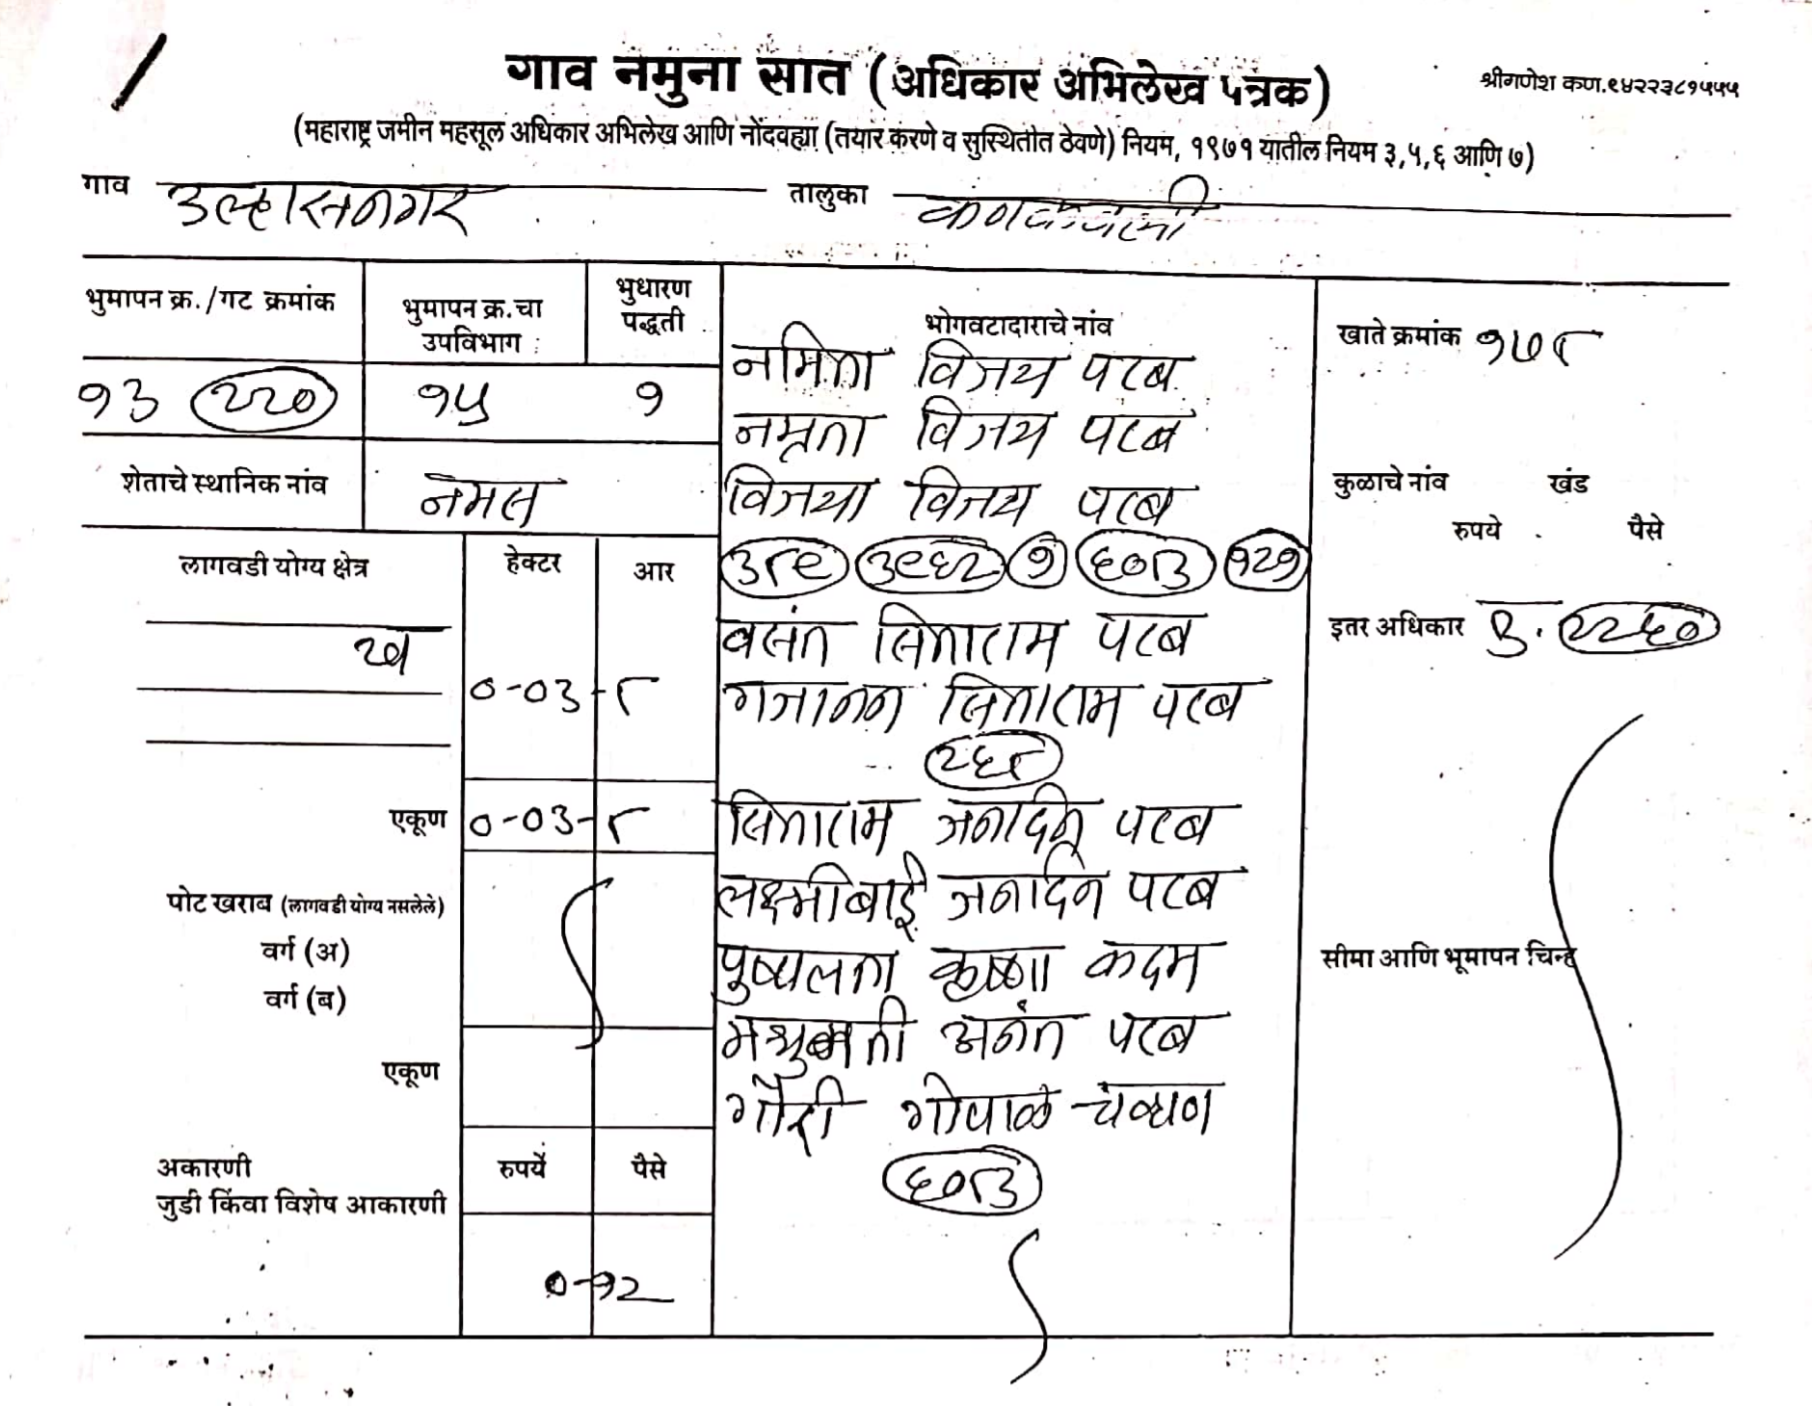 गाव नमुना सात (अधिकार अभिलेख पत्रक)
श्रीगणेश कण.९४२२३८१५५५
(महाराष्ट्र जमीन महसूल अधिकार अभिलेख आणि नोंदवह्या (तयार करणे व सुस्थितीत ठेवणे) नियम, १९७१ यातील नियम ३,५,६ आणि ७)
गाव उल्हासनगर तालुका
भुमापन क्र./गट क्रमांक
भुमापन क्र.चा उपविभाग
भुधारण पद्धती
१३ २२० १५ १
शेताचे स्थानिक नांव नेमस
लागवडी योग्य क्षेत्र हेक्टर आर
०-०३-८
एकूण ०-०३-८
पोट खराब (लागवडी योग्य नसलेले)
वर्ग (अ)
वर्ग (ब)
एकूण
अकारणी रुपये पैसे
जुडी किंवा विशेष आकारणी
०-१२
भोगवटादाराचे नांव
नमिता विजय परब
नम्रता विजय परब
विजया विजय परब
३८९ ३९६२ १ ६०८३ १२१
वसंत सिताराम परब
गजानन सिताराम परब
२६८
सिताराम जनार्दन परब
लक्ष्मीबाई जनार्दन परब
पुष्पलता कृष्णा कदम
अनंत परब
गौरी गोपाळ चव्हाण
६०८३
खाते क्रमांक १७८
कुळाचे नांव खंड
रुपये पैसे
इतर अधिकार इ. २२६०
सीमा आणि भूमापन चिन्ह